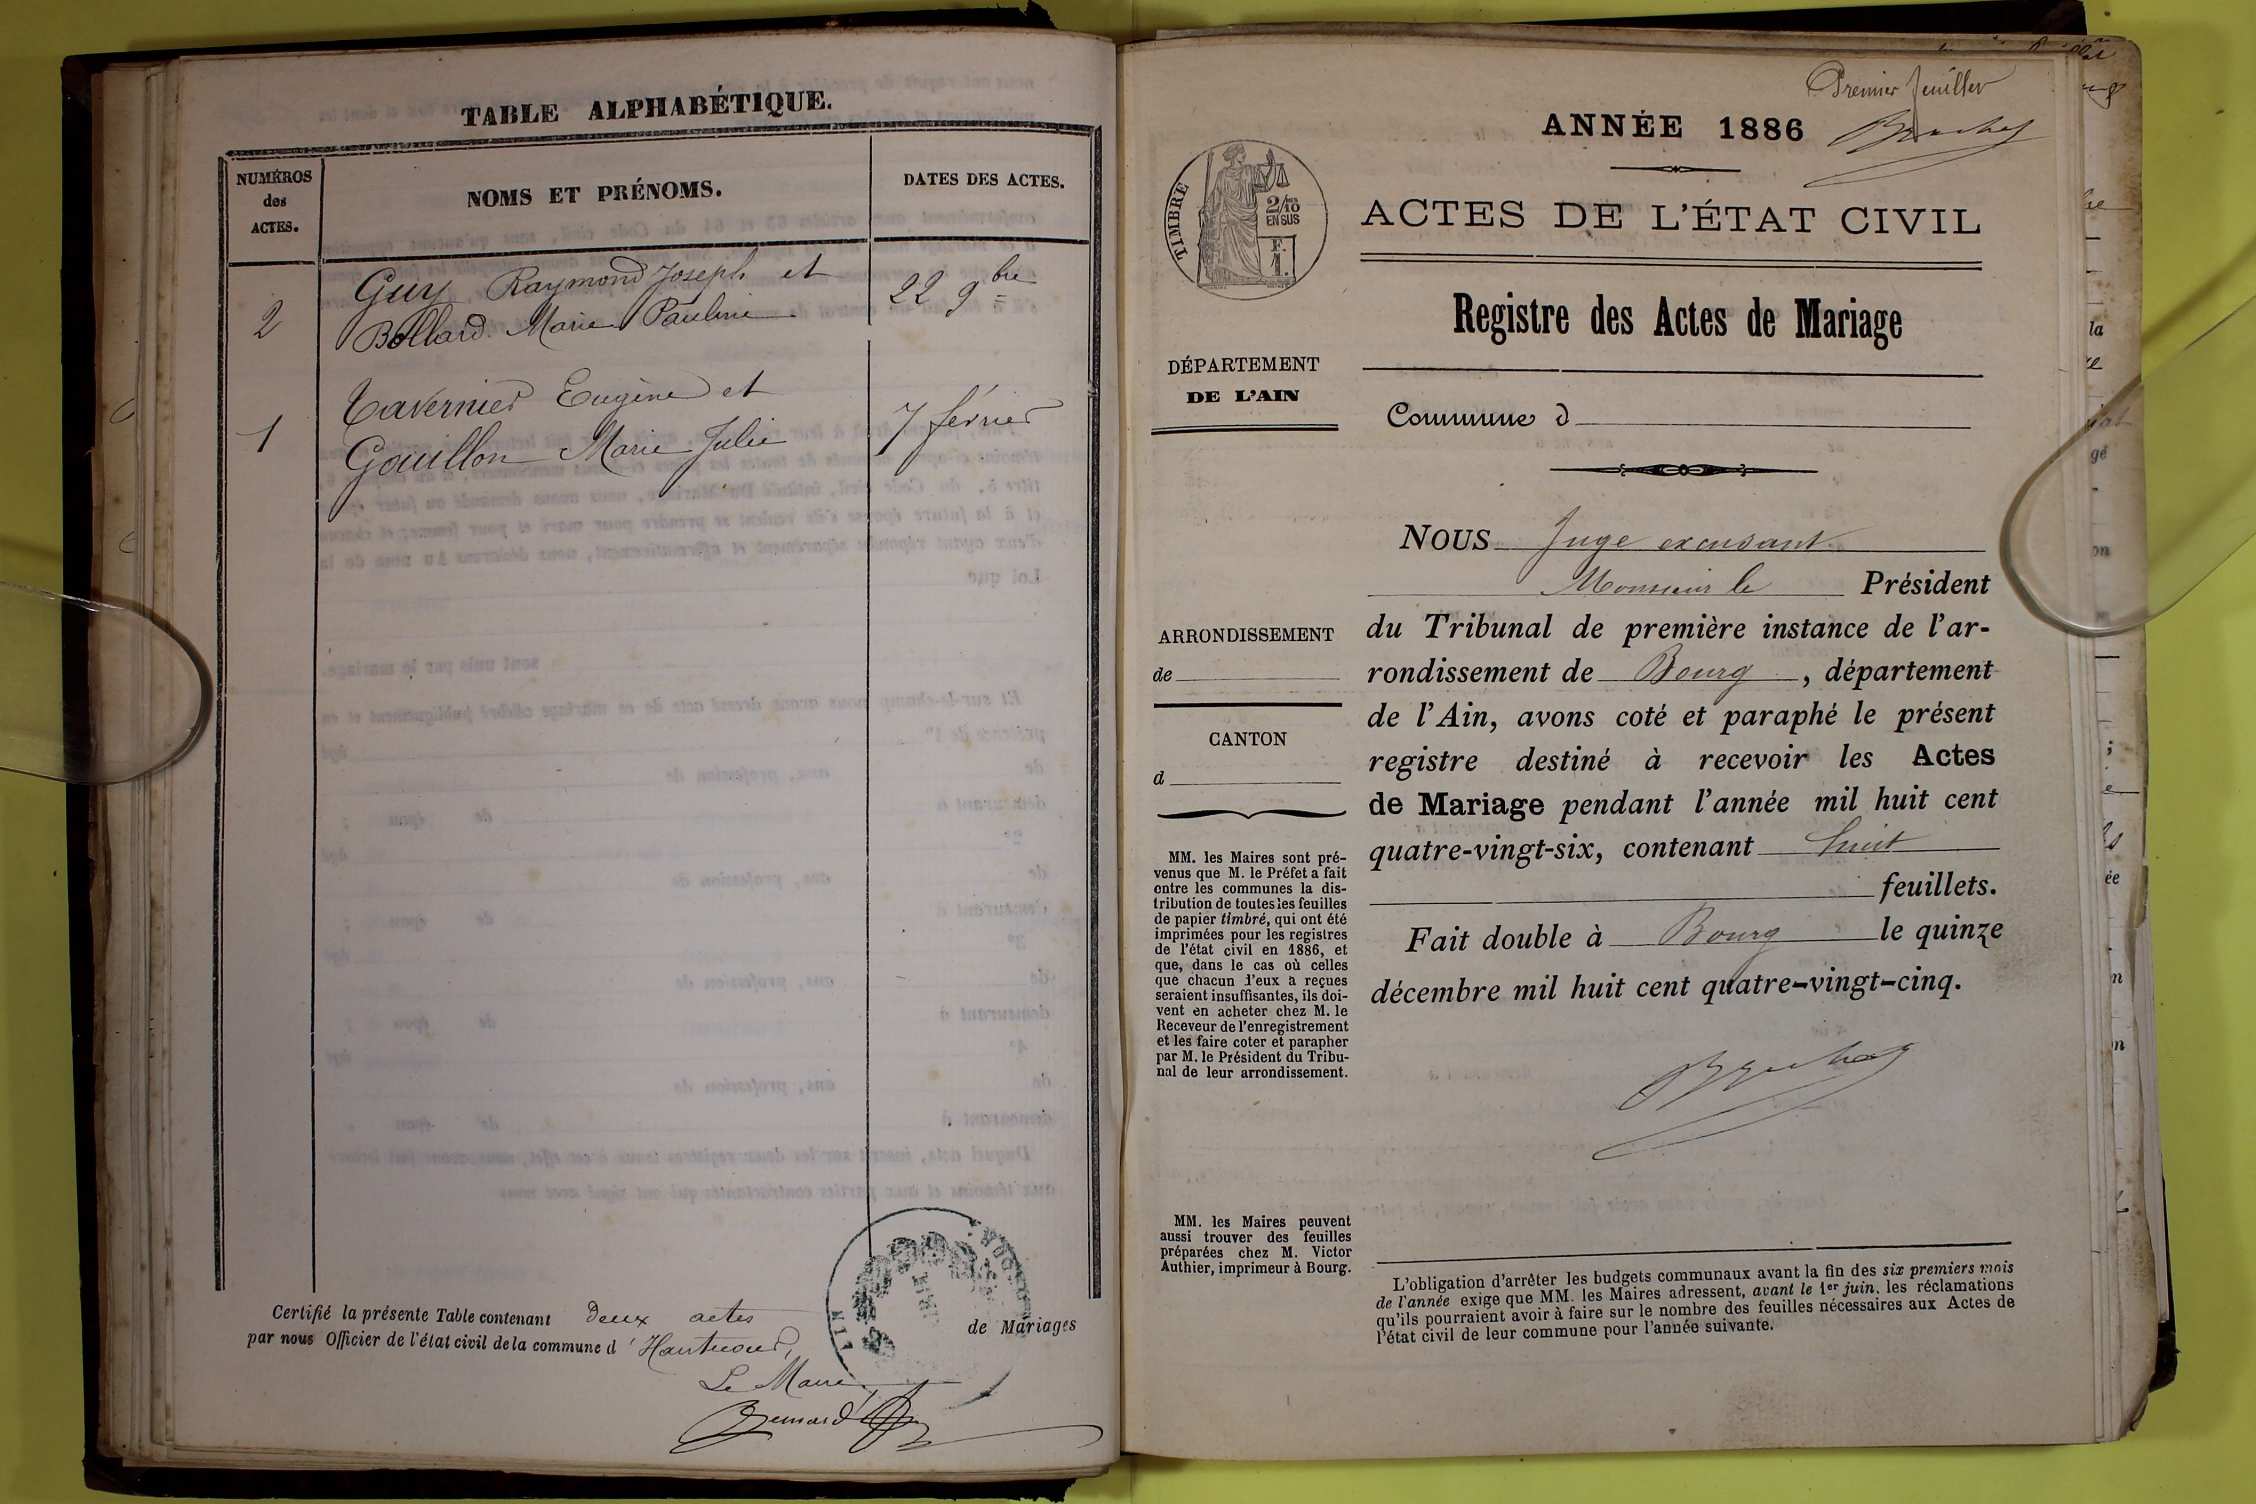 TABLE ALPHABÉTIQUE.
NUMÉROS
des
ACTES.
NOMS ET PRÉNOMS.
DATES DES ACTES.
2
Guy Raymond Joseph et
Bollard Marie Pauline
22 9bre
1
Tavernier Eugène et
Gouillon Marie Julie
7 février
Certifié la présente Table contenant deux actes de Mariages
par nous Officier de l'état civil de la commune d'Hautecour,
Le Maire,
Bernard
Premier feuillet
ANNÉE 1886
TIMBRE
2/10
EN SUS
F.
1.
ACTES DE L'ÉTAT CIVIL
Registre des Actes de Mariage
DÉPARTEMENT
DE L'AIN
Commune d
ARRONDISSEMENT
de
CANTON
d
MM. les Maires sont pré-
venus que M. le Préfet a fait
entre les communes la dis-
tribution de toutes les feuilles
de papier timbré, qui ont été
imprimées pour les registres
de l'état civil en 1886, et
que, dans le cas où celles
que chacun d'eux a reçues
seraient insuffisantes, ils doi-
vent en acheter chez M. le
Receveur de l'enregistrement
et les faire coter et parapher
par M. le Président du Tribu-
nal de leur arrondissement.
MM. les Maires peuvent
aussi trouver des feuilles
préparées chez M. Victor
Authier, imprimeur à Bourg.
NOUS Juge excusant
Monsieur le Président
du Tribunal de première instance de l'ar-
rondissement de Bourg, département
de l'Ain, avons coté et paraphé le présent
registre destiné à recevoir les Actes
de Mariage pendant l'année mil huit cent
quatre-vingt-six, contenant huit
feuillets.
Fait double à Bourg le quinze
décembre mil huit cent quatre-vingt-cinq.
L'obligation d'arrêter les budgets communaux avant la fin des six premiers mois
de l'année exige que MM. les Maires adressent, avant le 1er juin, les réclamations
qu'ils pourraient avoir à faire sur le nombre des feuilles nécessaires aux Actes de
l'état civil de leur commune pour l'année suivante.